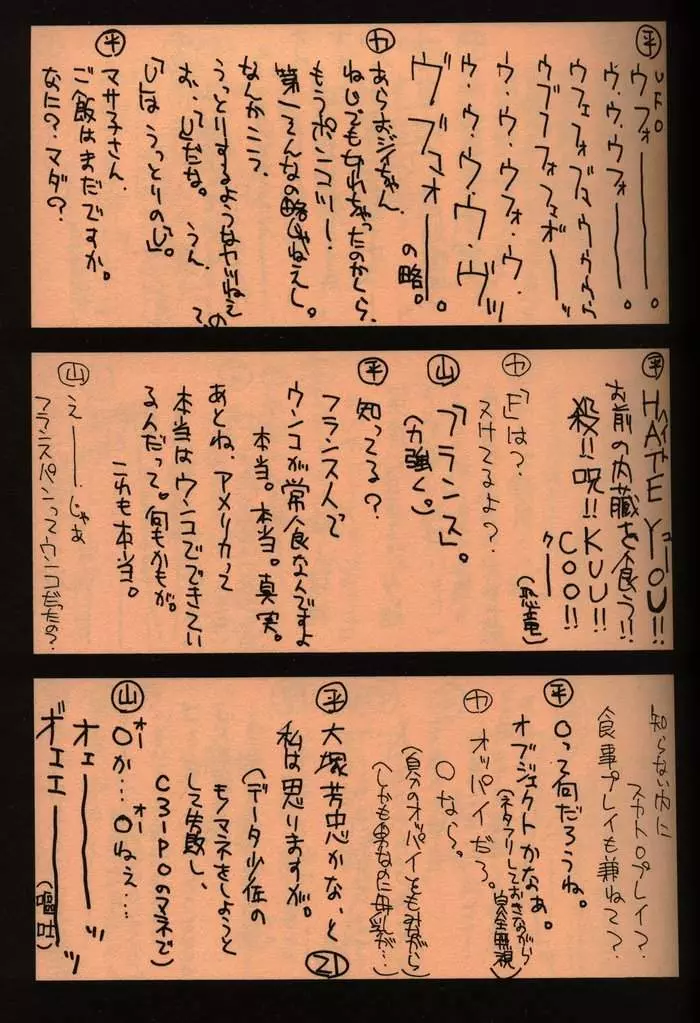 平
UFO
ウフォーーー。
ウ・ウ・ウフォーーー。
ウフェフォブマウウウウ
ウブフフォフェボーーッ
ウ・ウ・ウフォ・ウ・
ウ・ウ・ウ・ウ・ヴッ
ヴブマォーーー。
の略。
カ
あらおジイちゃん、
ねじでも なれちゃったのかしら、
もうポンコツ!
第一そんなの略じゃねえし。
なんかこう、
うっとりするようなヤツねえの
お、「U」だな。 うん、
「U」は うっとりの「U」。
平
マサ子さん、
ご飯はまだですか。
なに?マダ?
平
HATE YOU!!
ヘイト ユー
お前の内臓を食う!!
殺!!呪!!KUU!!
COO!!
クー
カ
「F」は?
ヌけてるよ?
(恐竜)
山
「フランス」。
(力強く。)
平
知ってる?
フランス人て
ウンコが常食なんですよ
本当。本当。真実。
あとね、アメリカって
本当はウンコでできてい
るんだって。何もかもが。
これも本当。
山
えーー、じゃあ
フランスパンってウンコだったの?
知らない内に
スカトロプレイ?
食事プレイも兼ねて?
平
Oって何だろうね。
オブジェクトかなぁ。
(ネタフリしておきながら
完全無視)
カ
オッパイだろ。
Oなら。
(自分のオッパイをもみながら)
平
大塚芳忠かな、と
私は思いますが。
(データ少佐の
モノマネをしようと
して失敗し、
C3-POのマネで)
21
山
Oか…Oねぇ…
オー オー
オェーーーッ
ギェエエーーーッ
(嘔吐)